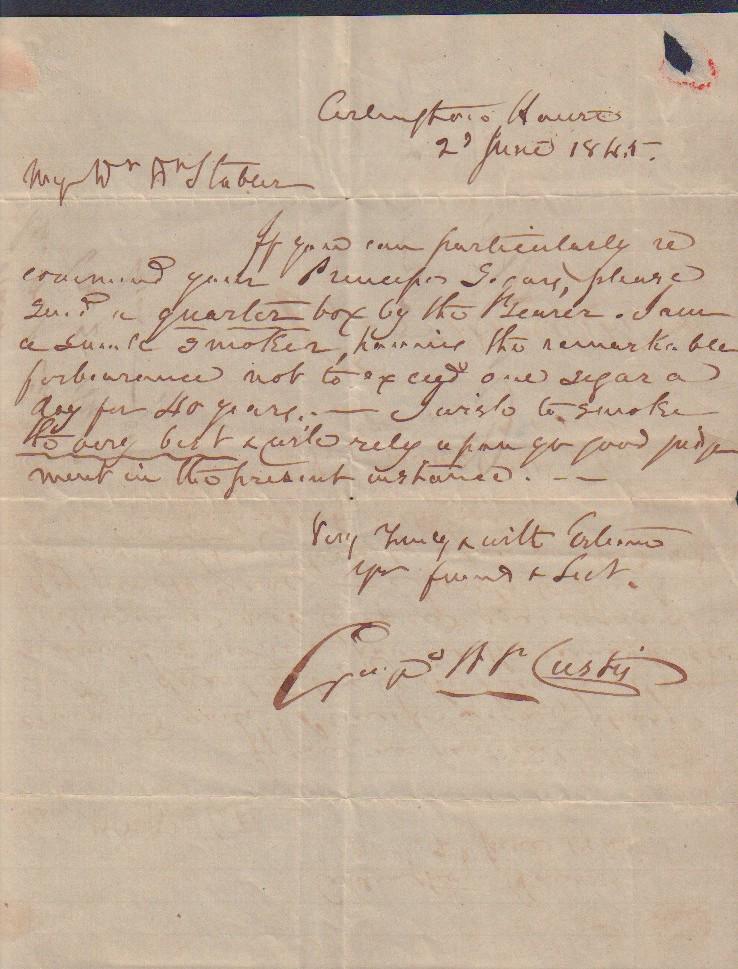 Arlington House
2d June 1845.
My Dr Mr Stabler
If you can particularly re
commend your Principe Segars, please
send a quarter box by the Bearer. I am
a small smoker, having the remarkable
forbearance not to exceed one segar a
day for 40 years. — I wish to smoke
the very best & will rely upon yr good judg
ment in the present instance. — —
Very Truly & with Esteem
Yr friend &
Geo W P Custis